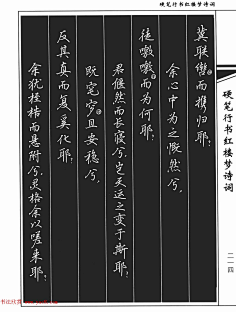 硬笔行书红楼梦诗词
冀联辔而携归耶？
余心中为之慨然兮，
徒噭噭而为何耶？
君偃然而长寝兮，岂天运之变于斯耶？
既窀穸且安稳兮，
反其真而复奚化耶？
余犹桎梏而悬附兮，灵格余以嗟来耶？
硬笔行书红楼梦诗词
二一四